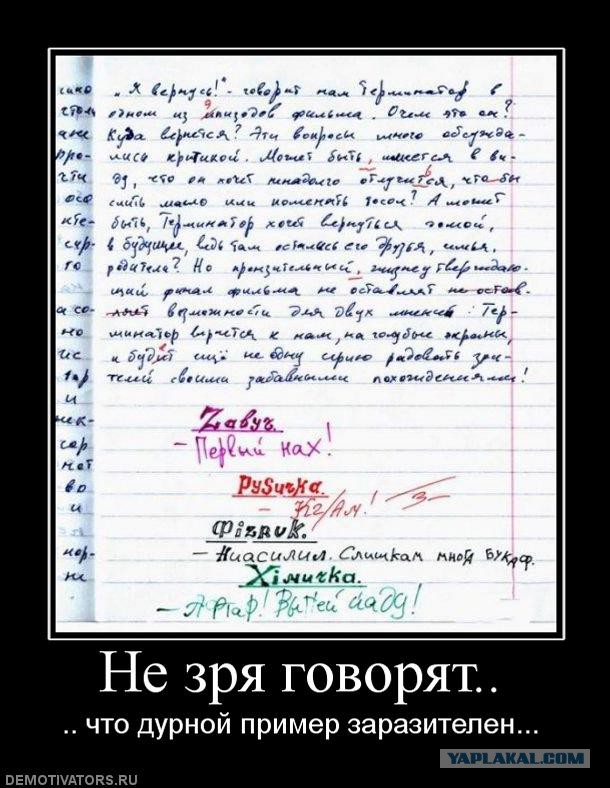 „Я вернусь!" - говорит нам Терминатор в
одном из эпизодов фильма. О чем это он?
Куда вернется? Эти вопросы много обсужда-
лись критикой. Может быть, имеется в ви-
ду, что он хочет ненадолго отлучится, что-бы
слить масло или поменять тосол? А может
быть, Терминатор хочет вернуться домой,
в будущее, ведь там остались его друзья, семья,
родители? Но пронзительный, жизнеутверждаю-
щий финал фильма не оставляет не остав-
ляет возможности для двух мнений: Тер-
минатор вернется к нам, на голубые экраны,
и будит ещё не одну серию радовать зри-
телей своими забавными похождениями!
Zавуч.
- Первый нах!
РуSичка.
- КГ/Ам! 3-
Фiзрvk.
- Ниасилил. Слишкам многа букаф.
Хiмичка.
- Афтар! Выпей йаду!
Не зря говорят..
.. что дурной пример заразителен...
YAPLAKAL.COM
DEMOTIVATORS.RU